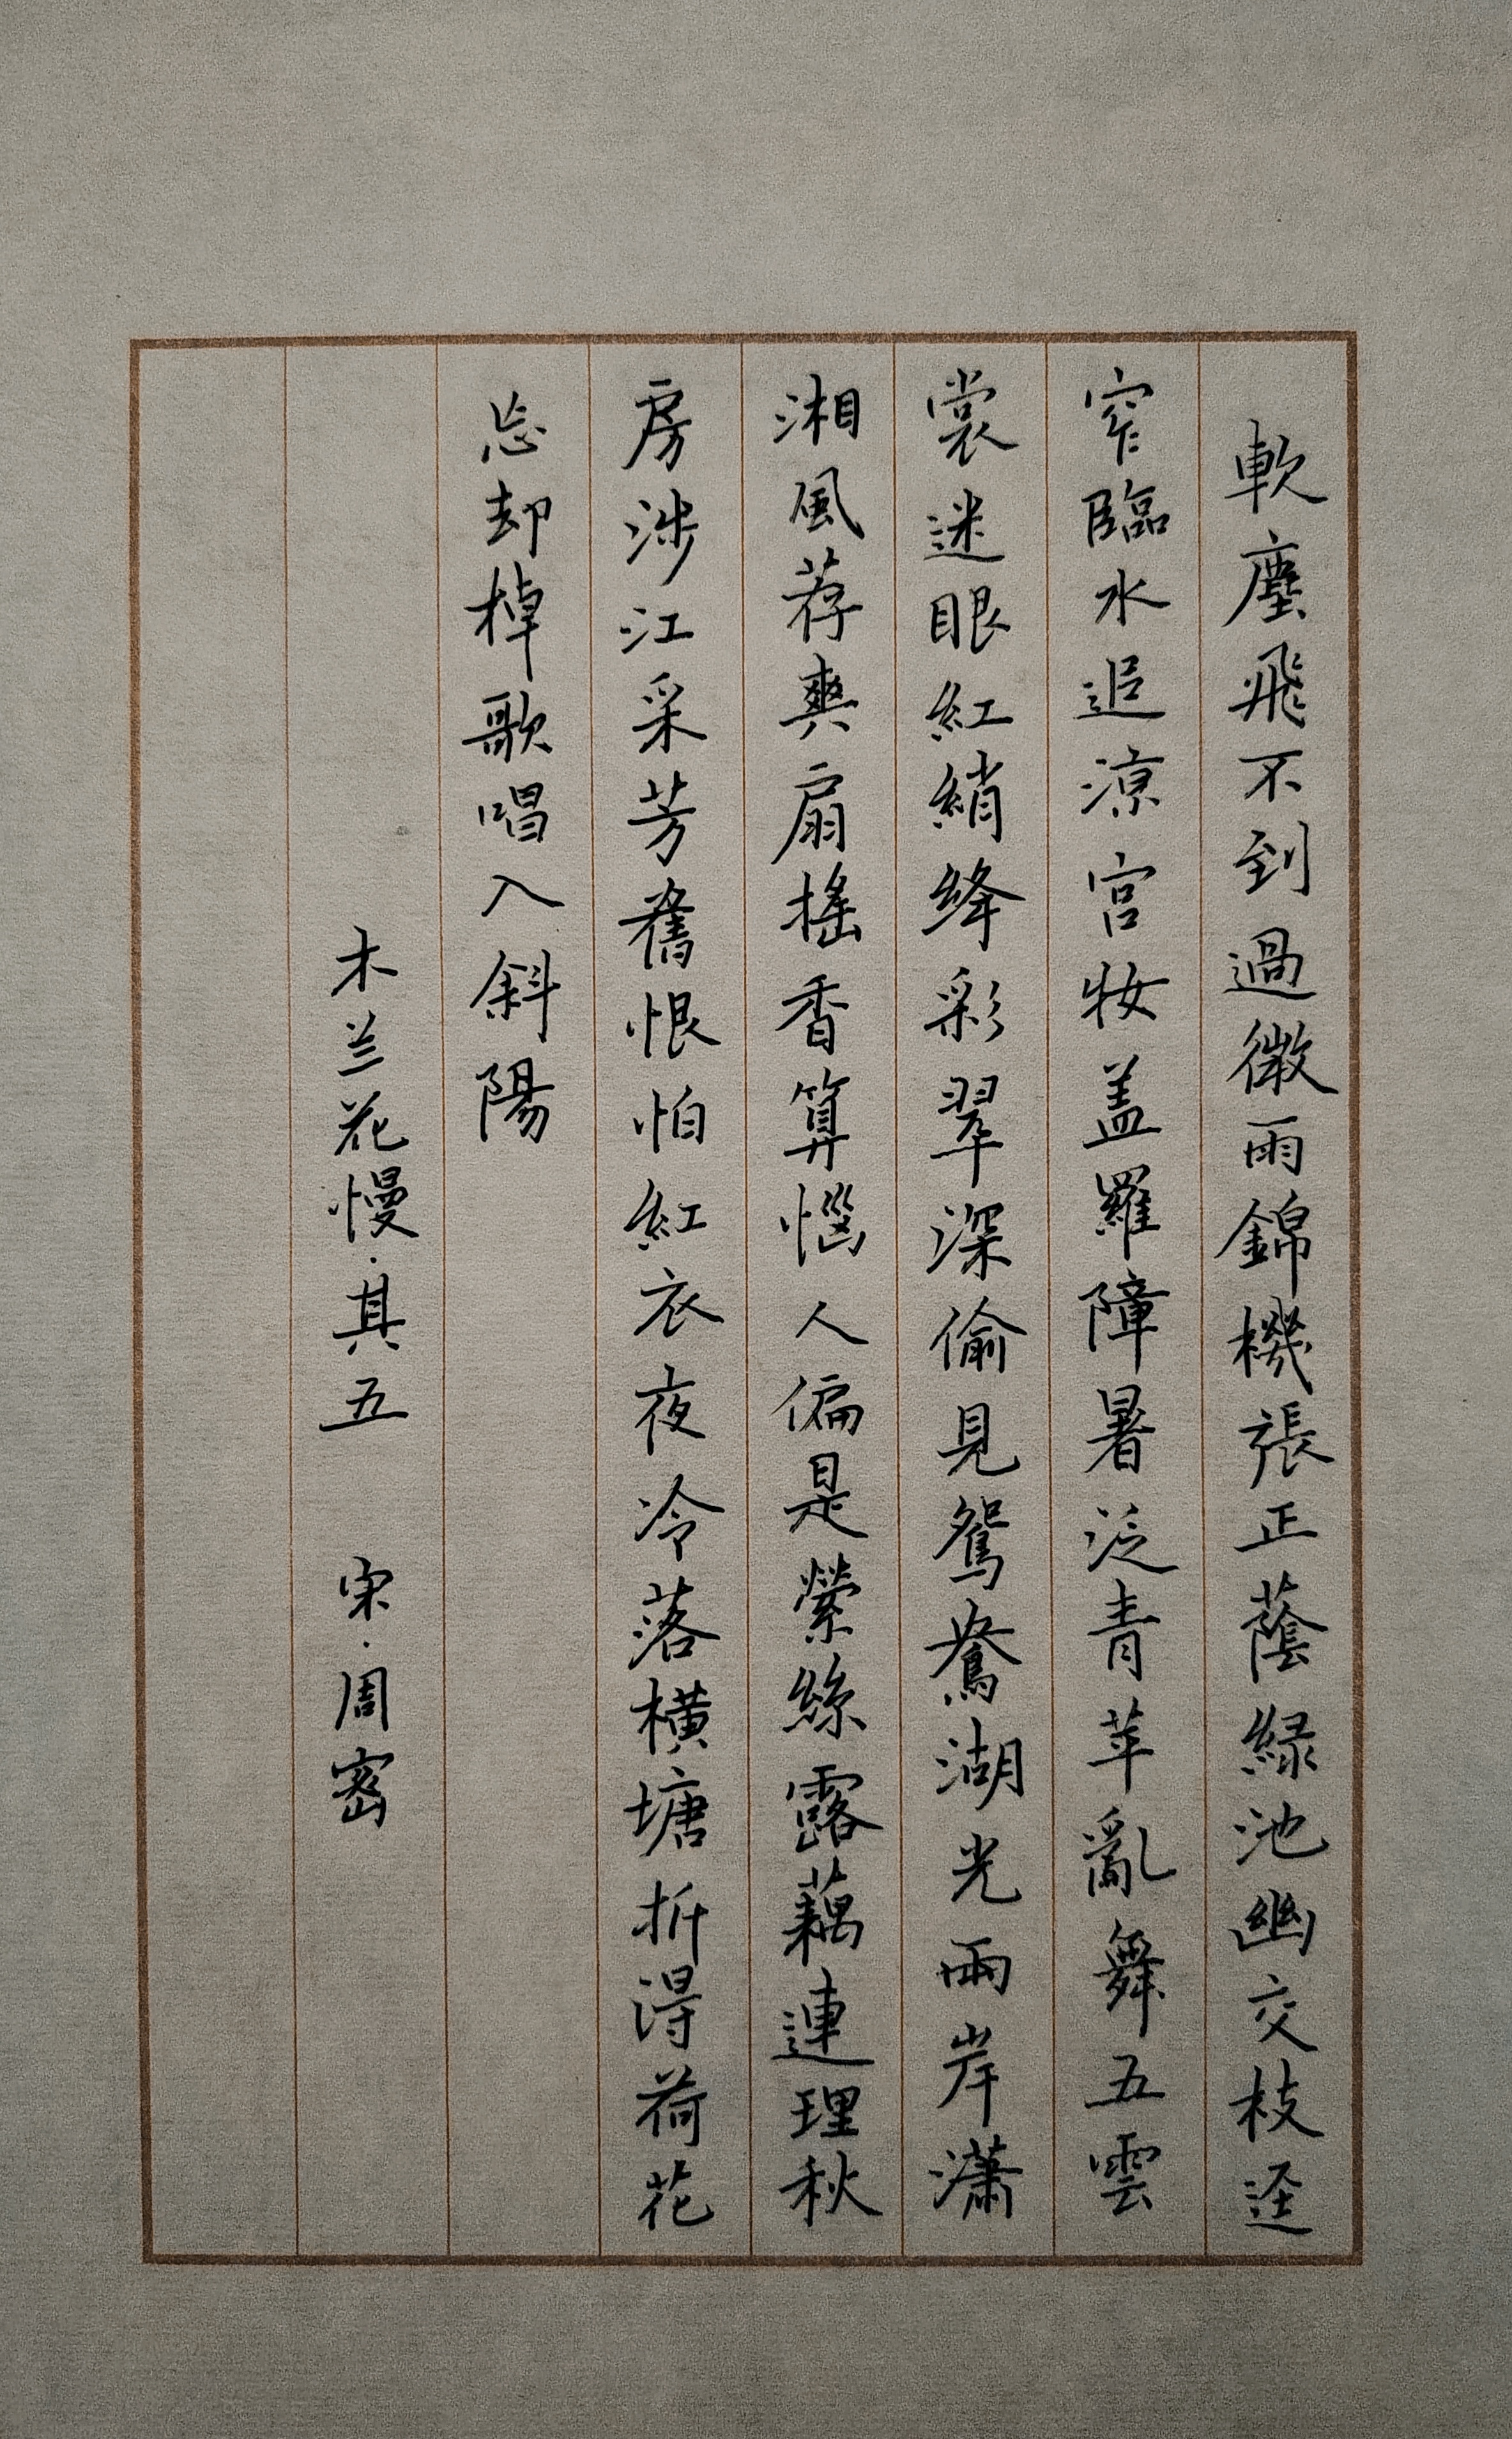 軟塵飛不到過微雨錦機張正蔭緑池幽交枝逕
窄臨水追涼宫妝盖羅障暑泛青苹亂舞五雲
裳迷眼紅綃絳彩翠深偷見鴛鴦湖光兩岸瀟
湘風荐爽扇摇香算惱人偏是縈絲露藕連理秋
房涉江采芳舊恨怕紅衣夜冷落横塘折得荷花
忘却棹歌唱入斜陽
木兰花慢·其五 宋·周密